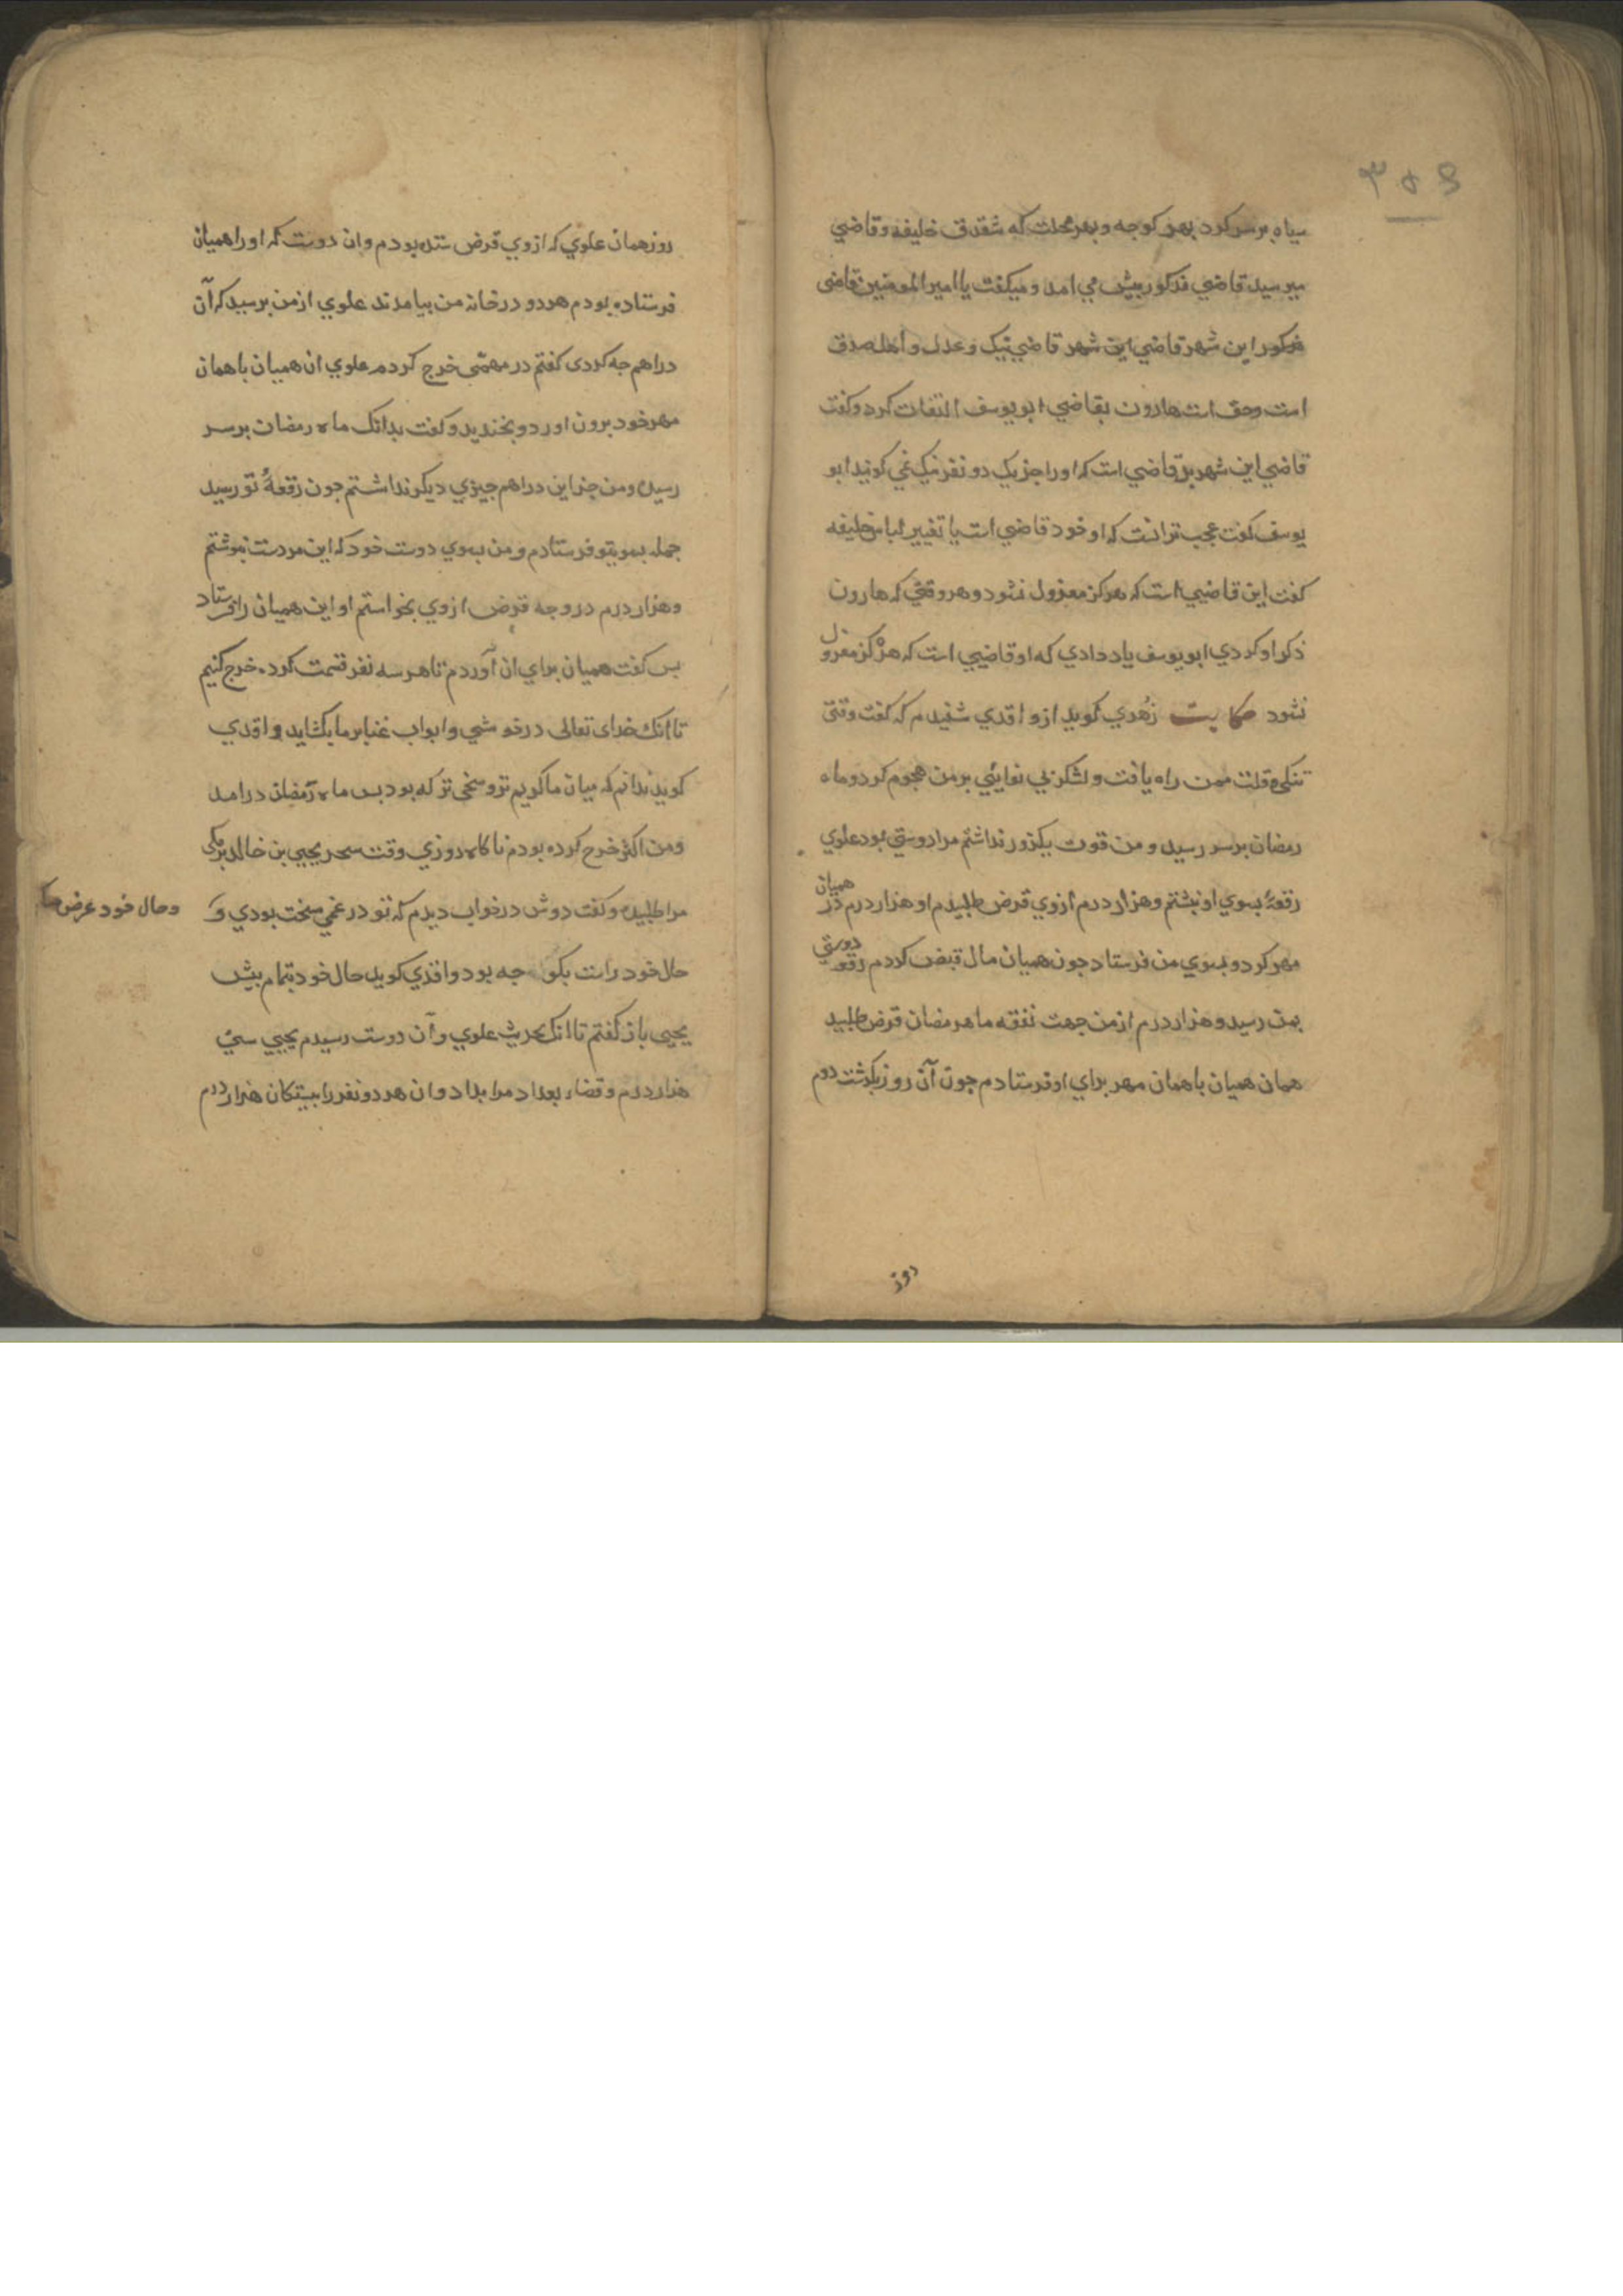 ۳۵۶
سیاه برسر کرد بهر کوجه و بهر محلت که شقدق خلیفه و قاضي
میرسید قاضي مذکور پیش مي امد و میکفت یا امیر المومنین قاضی
این شهر قاضي این شهر قاضي نیک و عدل و اهل صدق
است و حق است هارون بقاضي ابو یوسف التفات کرد و کفت
قاضي این شهر بد قاضي است که اورا جز یک دو نفر نیک نمي کویند ابو
یوسف کفت عجب تر انست که او خود قاضي است با تغییر لباس خلیفه
کفت این قاضیي است که هرکز معزول نشود و هر وقتي که هارون
ذکر او کردي ابو یوسف یاد دادي که او قاضیي است که هرکز معزول
نشود حکایت زهدي کوید از واقدي شنیدم که کفت وقتی
تنکی و قلت بمن راه یافت و لشکر بي نوایي بر من هجوم کرد و ماه
رمضان برسر رسید و من قوت یکروز نداشتم مرا دوستي بود علوي
رقعهٔ بسوي او نبشتم و هزار درم ازوي قرض طلبیدم او هزار درم در همیان
مهر کرد و بسوي من فرستاد جون همیان مال قبض کردم رقعه دوستي
بمن رسید و هزار درم ازمن جهت نفقه ماه رمضان قرض طلبید
همان همیان با همان مهر براي او فرستادم جون آن روز بکذشت دوم
روز
روز همان علوي که ازوي قرض ستده بودم وان دوست که اورا همیان
فرستاده بودم هر دو در خانه من بیامدند علوي ازمن برسید که آن
دراهم جه کردی کفتم در مهمّی خرج کردم علوي ان همیان با همان
مهر خود برون اورد و بخندید و کفت بدانک ماه رمضان برسر
رسید و من جز این دراهم جیزي دیکر نداشتم جون رقعهٔ تو رسید
جمله بسوي تو فرستادم و من بسوي دوست خود که این مردست نبوشتم
و هزار درم در وجه قرض ازوي بخواستم او این همیان را فرستاد
بس کفت همیان براي ان آوردم تا هر سه نفر قسمت کرده خرج کنیم
تا انک خدای تعالی در خوشي و ابواب غنا بر ما بکشاید واقدي
کوید ندانم که میان ما کریم تر و سخی تر که بود بس ماه رمضان درامد
و من اکثر خرج کرده بودم ناکاه روزي وقت سحر یحیي بن خالد برمکی
مرا طلبید و کفت دوش در خواب دیدم که تو در غمي سخت بودي و
و حال خود عرض
حال خود راست بکو جه بود واقدي کوید حال خود بتمام پیش
یحیی باز کفتم تا انک بحدیث علوي و آن دوست رسیدم یحیي سي
هزار درم و قضاء بغداد مرا بداد و ان هر دو نفر را بیستکان هزار درم